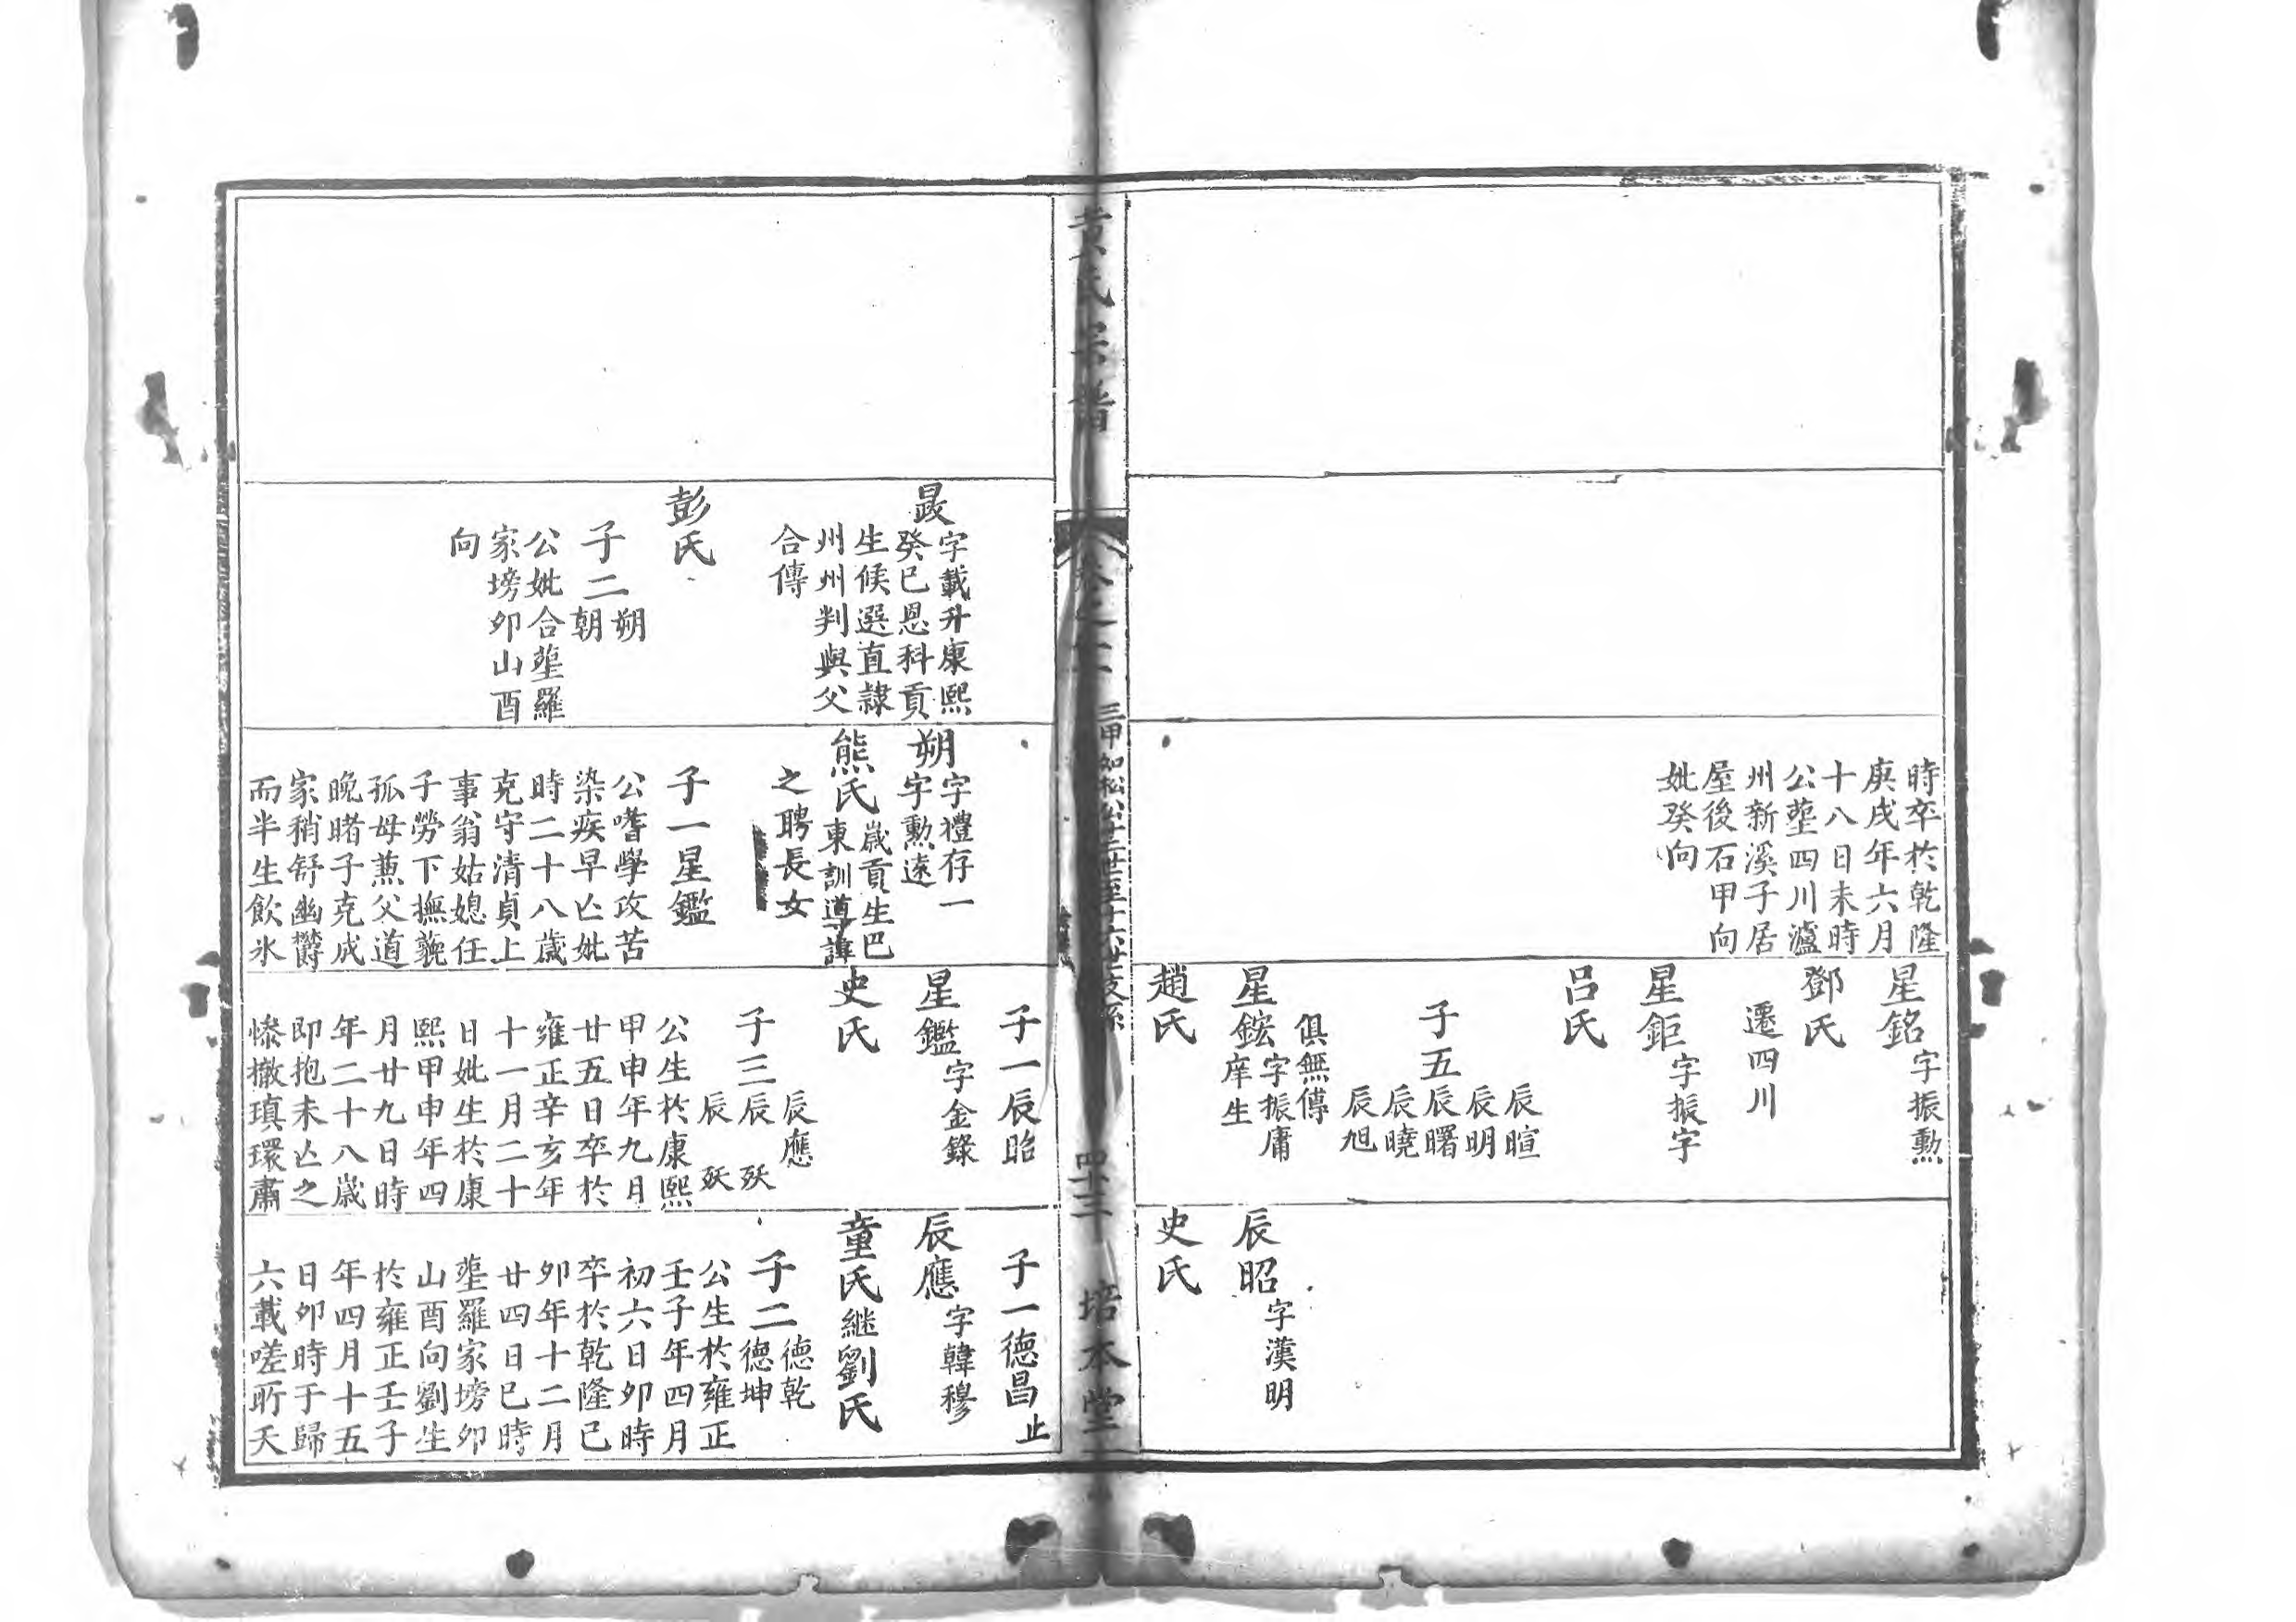 時卒於乾隆
庚戌年六月
十八日未時
公塟四川瀘
州新溪子居
屋後石甲向
妣癸向
星銘字振勳
鄧氏
遷四川
星鉅字振字
呂氏
子五
辰暄
辰明
辰曙
辰曉
辰旭
俱無傳
星鋐字振庸
庠生
趙氏
辰昭字漢明
史氏
黃氏宗譜
卷之
三甲如松公十三世至十六世支系
培本堂
晸字載升康熙
癸巳恩科貢
生候選直隸
州州判與父
合傳
彭氏
子二朔
朝
公妣合塟羅
家塝夘山酉
向
朔字禮存一
字勳遠
熊氏歲貢生巴
東訓導諱
之聘長女
子一星鑑
公嗜學攻苦
染疾早亡妣
時二十八歲
克守清貞上
事翁姑媳任
子勞下撫藐
孤母蕙父道
晚睹子克成
家稍舒幽欝
而半生飲氷
子一辰昭
星鑑字金錄
史氏
子三辰應
辰 殀
辰 殀
公生於康熙
甲申年九月
廿五日卒於
雍正辛亥年
十一月二十
日妣生於康
熙甲申年四
月廿九日時
年二十八歲
即抱未亡之
慘撤瑱環肅
子一德昌止
辰應字韓穆
童氏継劉氏
子二德乾
德坤
公生於雍正
壬子年四月
初六日夘時
卒於乾隆己
夘年十二月
廿四日巳時
塟羅家塝夘
山酉向劉生
於雍正壬子
年四月十五
日夘時于歸
六載嗟所天